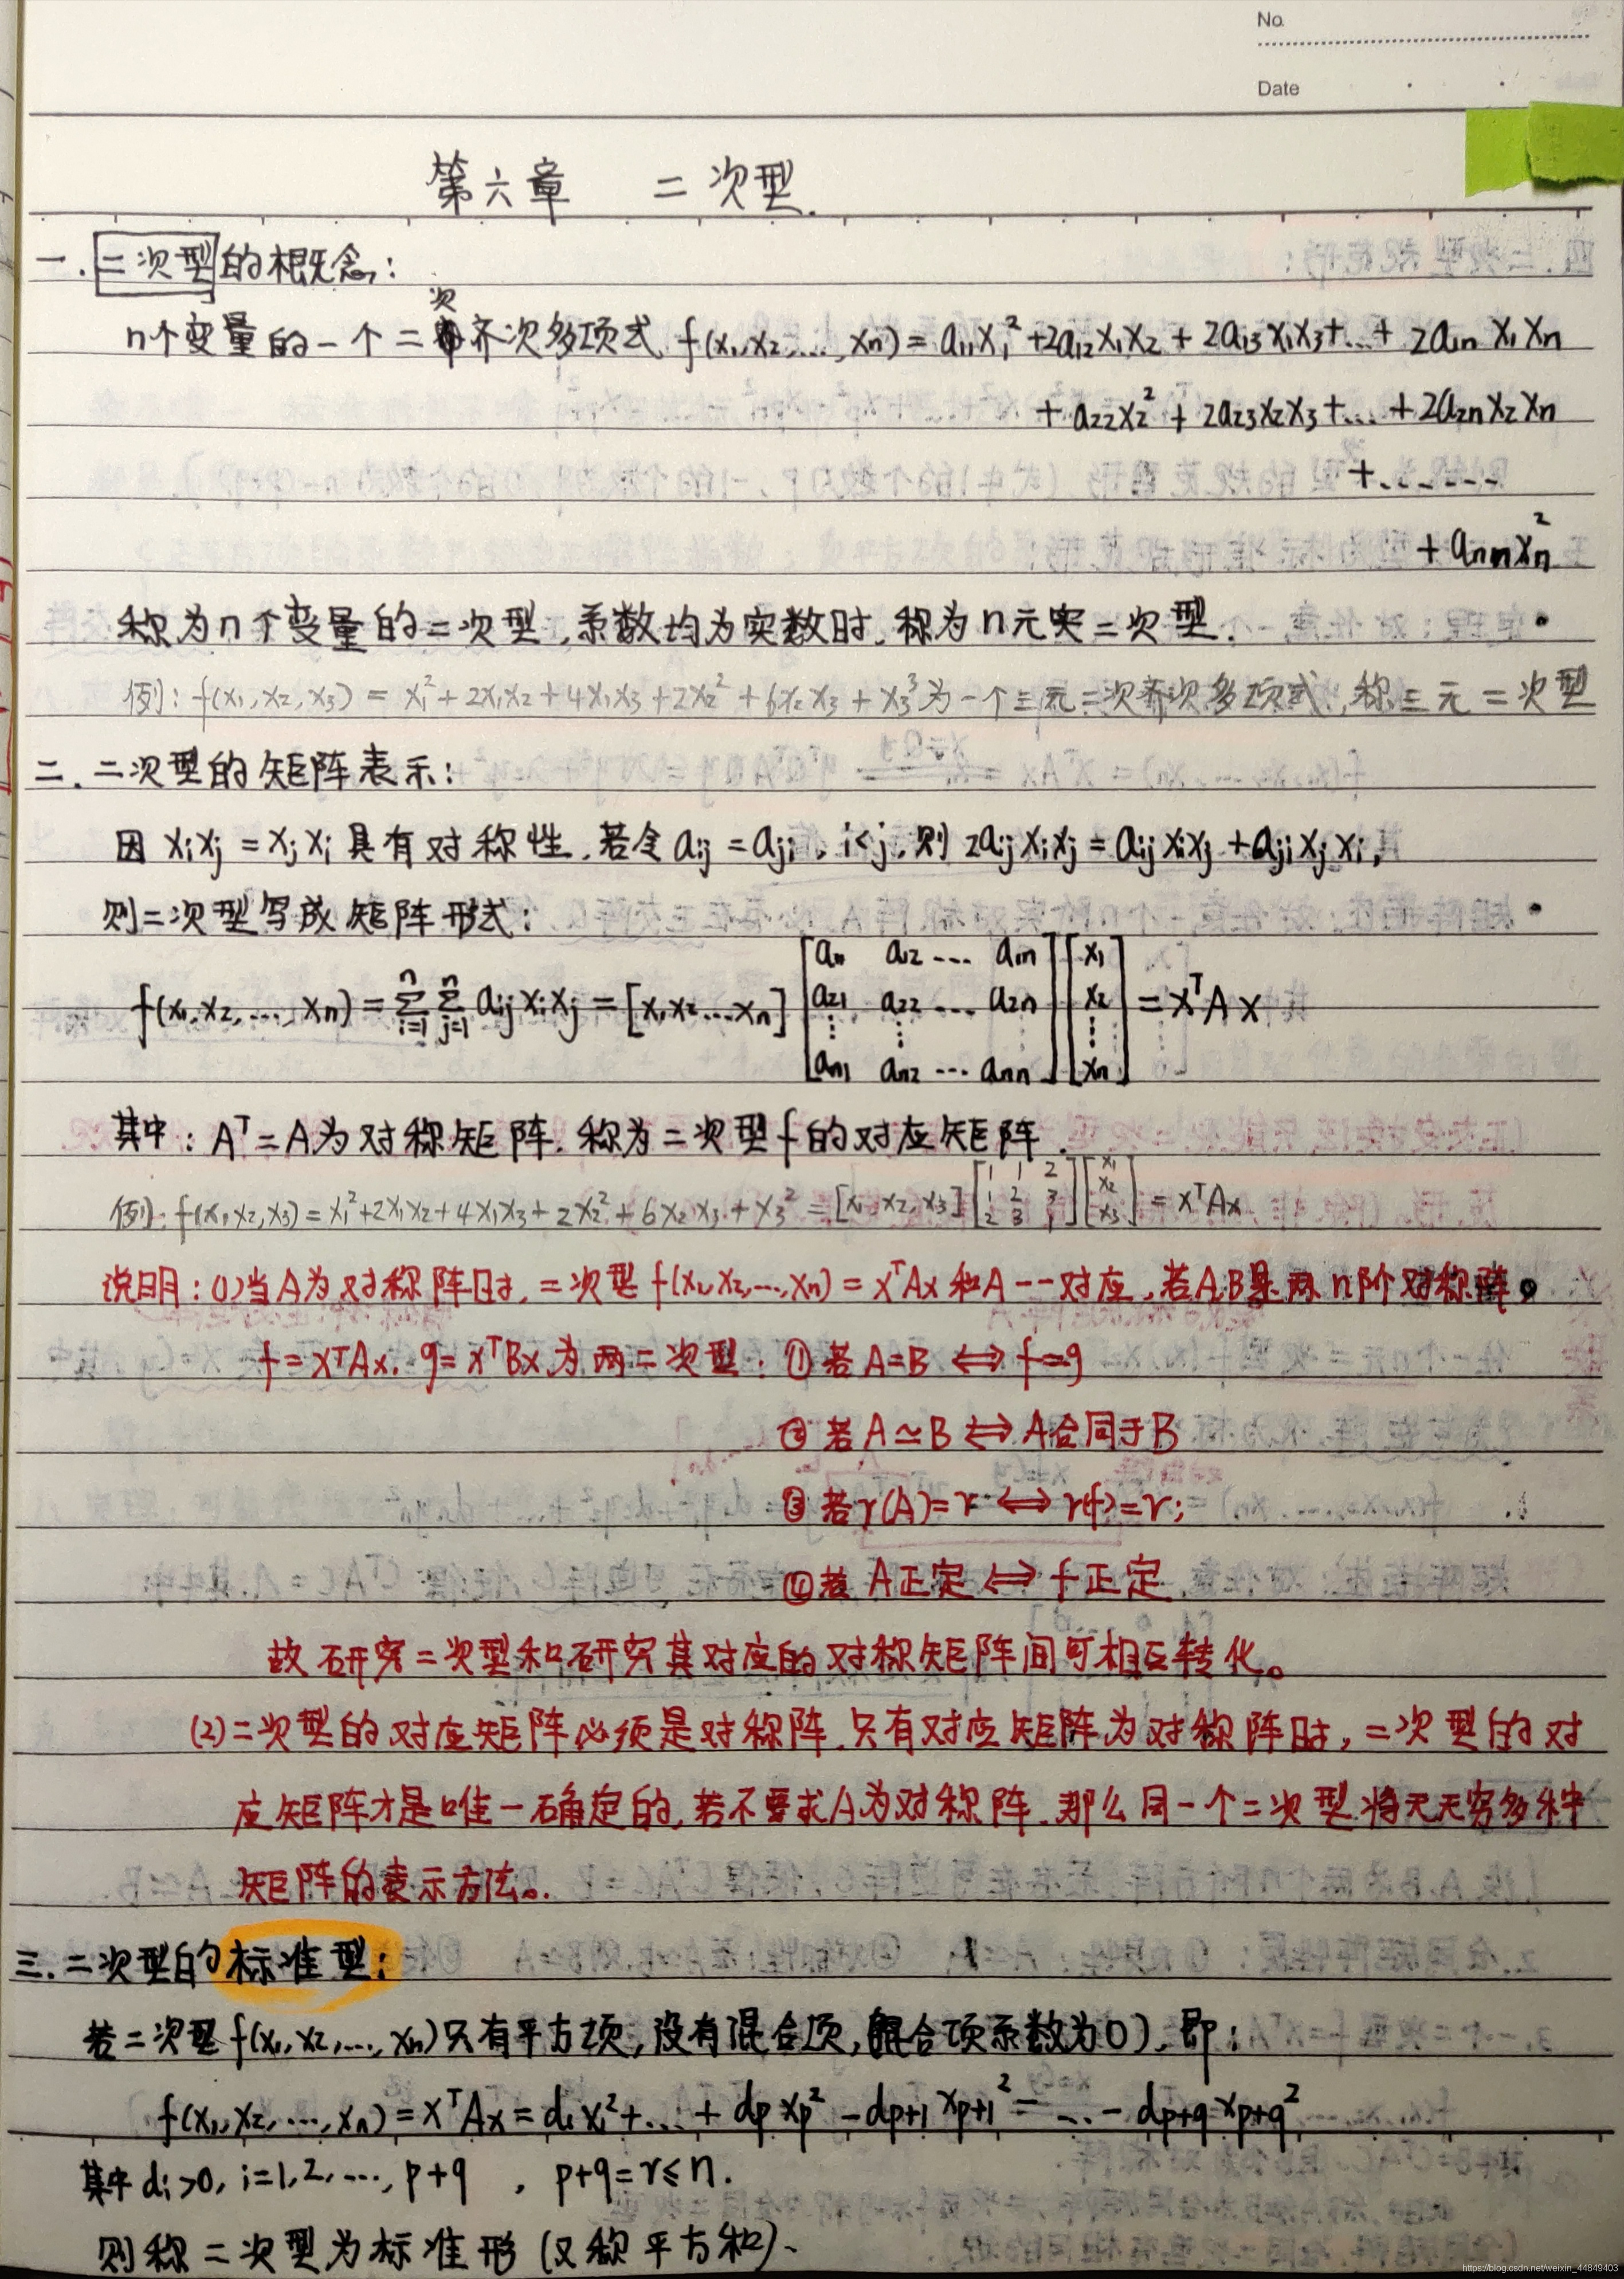 No.
Date
第六章 二次型.
一.二次型的概念:
n个变量的一个二次齐次多项式 f(x₁,x₂,...,xn) = a₁₁x₁² + 2a₁₂x₁x₂ + 2a₁₃x₁x₃+...+ 2a₁n x₁xn
+ a₂₂x₂² + 2a₂₃x₂x₃+... + 2a₂nx₂xn
+.......
+ annxn²
称为n个变量的二次型,系数均为实数时,称为n元实二次型.
例: f(x₁,x₂,x₃) = x₁² + 2x₁x₂ + 4x₁x₃ + 2x₂² + 6x₂x₃ + x₃³ 为一个三元二次齐次多项式,称三元二次型
二.二次型的矩阵表示:
因 xixj = xjxi 具有对称性.若令 aij = aji, i<j,则 2aijxixj = aijxixj + ajixjxi,
则二次型写成矩阵形式:
f(x₁,x₂,...,xn) = Σ(i=1→n) Σ(j=1→n) aijxixj = [x₁,x₂...xn] [a₁₁ a₁₂ ... a₁n; a₂₁ a₂₂ ... a₂n; ⋮ ⋮ ⋮; an₁ an₂ ... ann] [x₁; x₂; ⋮; xn] = xᵀAx
其中: Aᵀ=A为对称矩阵.称为二次型f的对应矩阵.
例: f(x₁,x₂,x₃) = x₁²+2x₁x₂+4x₁x₃+2x₂²+6x₂x₃+x₃² = [x₁,x₂,x₃] [1 1 2; 1 2 3; 2 3 1] [x₁; x₂; x₃] = xᵀAx
说明: (1)当A为对称阵时,二次型 f(x₁,x₂,...,xn) = xᵀAx 和A一一对应,若A,B是两n阶对称阵。
f = xᵀAx. g = xᵀBx 为两二次型: ①若A=B ⇔ f=g
② 若 A≃B ⇔ A合同于B
③ 若r(A)=r ⇔ r(f)=r;
④若 A正定 ⇔ f正定
故研究二次型和研究其对应的对称矩阵间可相互转化。
(2)二次型的对应矩阵必须是对称阵.只有对应矩阵为对称阵时,二次型的对
应矩阵才是唯一确定的,若不要求A为对称阵.那么同一个二次型将无无穷多种
矩阵的表示方法。.
三.二次型的标准型:
若二次型 f(x₁,x₂,...,xn)只有平方项,没有混合项,混合项系数为0),即:
f(x₁,x₂,...,xn) = xᵀAx = d₁x₁²+...+ dpxp² - dp+1 xp+1² = ... - dp+q xp+q²
其中 di>0, i=1,2,...,p+q , p+q=r≤n.
则称二次型为标准形(又称平方和).
https://blog.csdn.net/weixin_44849403